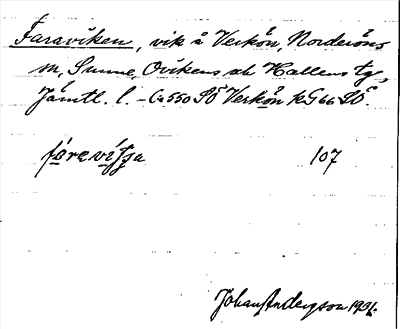 Faraviken, vik å Verkön, Norderöns
sn, Sunne, Ovikens och Hallens tg,
Jämtl. l. - Ca 550 SÖ Verkön kG 66 SÖ.
107
Johan Anderson 1936.